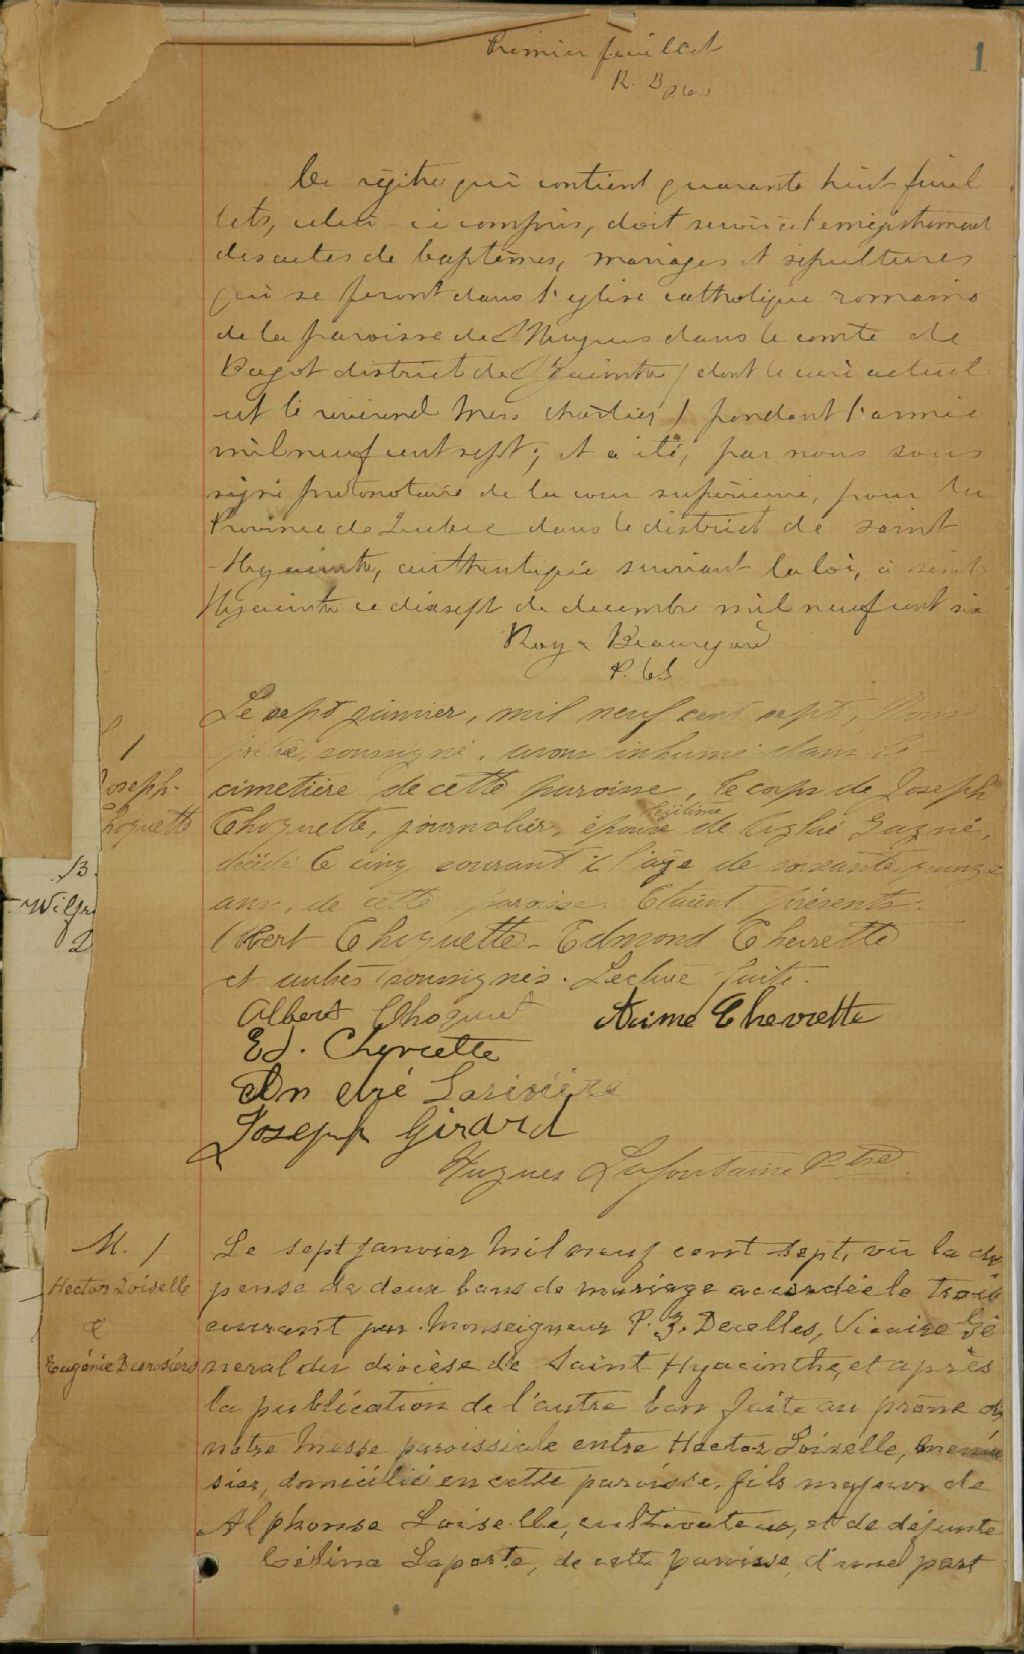 Premier feuillet
1
R. B p.c.s
Ce régitre qui contient quarante huit feuil
lets, celui-ci compris, doit servir à l'enregistrement
des actes de baptêmes, mariages et sépultures
qui se feront dans l'église catholique romaine
de la paroisse de St Hugues dans le comté de
Bagot district de St Hyacinthe / dont le curé actuel
est le révérend Mess Chartier / pendant l'année
mil neuf cent sept; et a été, par nous sous
signé protonotaire de la cour supérieure, pour la
Province de Québec dans le district de saint
Hyacinthe, authentiquée suivant la loi, à saint
Hyacinthe ce dix sept de decembre mil neuf cent six
Roy & Beauregard
P.C.S
Le sept janvier, mil neuf cent sept, Nous
prêtre, soussigné, avons inhumé dans le
1
cimetière de cette paroisse, le corps de Joseph
Joseph-
Choquette, journalier, époux légitime de Aglaé Gagné,
Choquette
décédé le cinq courant à l'âge de soixante quinze
B.
ans, de cette paroisse. Etaient présents:
Wilfr
Albert Choquette - Edmond Chevrette
2
et autres soussignés. Lecture faite.
Albert Choquet Aimé Chevrette
Ed. Chevrette
André Larivière
Joseph Girard
Hugues Lafontaine Ptre
M. 1
Le sept janvier mil neuf cent sept, vu la dis
Hector Loiselle
pense de deux bans de mariage accordée le trois
&
courant par Monseigneur P. Z. Decelles, Vicaire Gé
Eugénie Desrosiers
néral du diocèse de Saint-Hyacinthe, et après
la publication de l'autre ban faite au prône de
notre messe paroissiale entre Hector Loiselle, menui
sier, domicilié en cette paroisse, fils majeur de
Alphonse Loiselle, cultivateur, et de défunte
Célina Laporte, de cette paroisse, d'une part